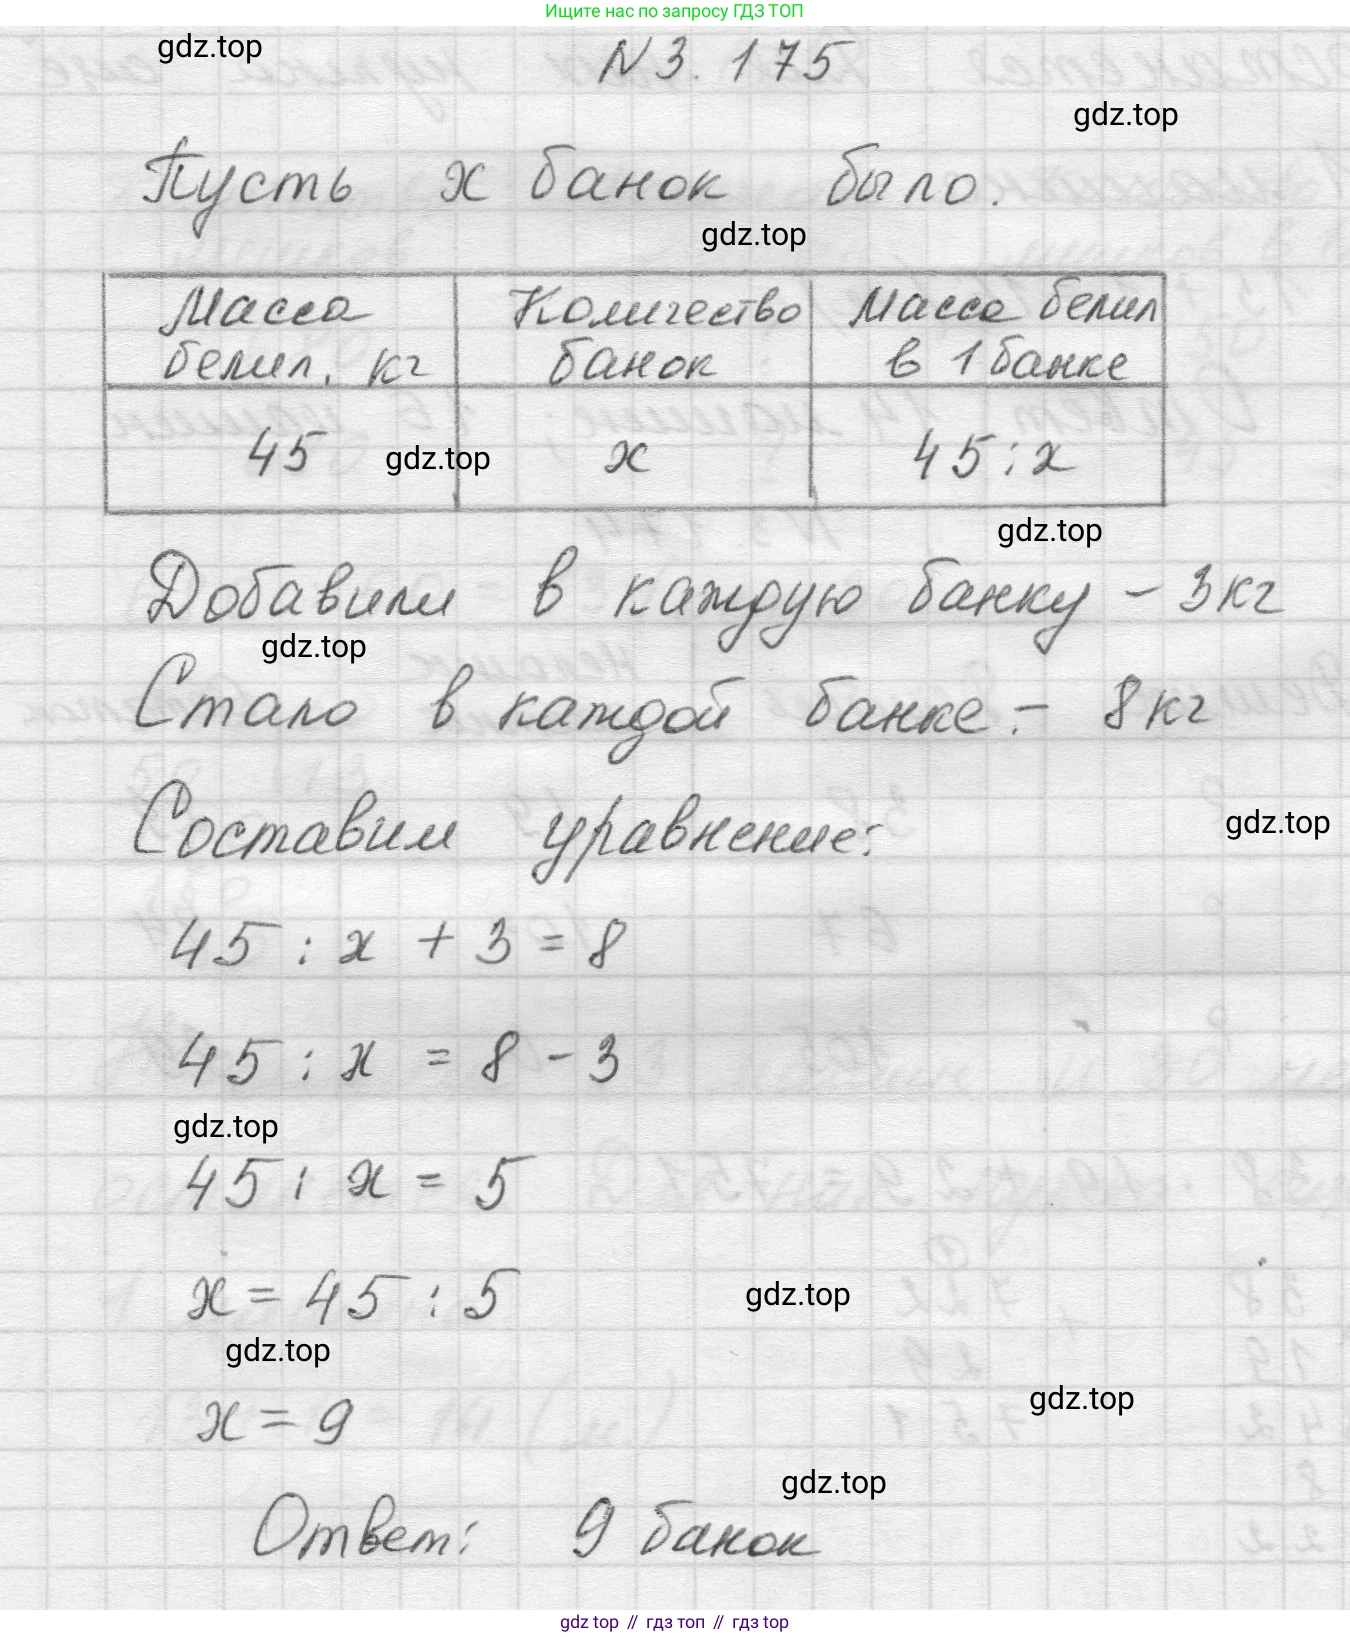 Ищите нас по запросу ГДЗ ТОП
gdz.top
N 3. 175
gdz.top
Пусть x банок было.
gdz.top
Масса белил, кг
Количество банок
Масса белил в 1 банке
45
gdz.top
x
45 : x
gdz.top
Добавили в каждую банку – 3 кг
gdz.top
Стало в каждой банке: – 8 кг
Составим уравнение:
gdz.top
45 : x + 3 = 8
45 : x = 8 – 3
gdz.top
45 : x = 5
x = 45 : 5
gdz.top
gdz.top
gdz.top
x = 9
gdz.top
Ответ: 9 банок
gdz top // гдз топ // gdz top